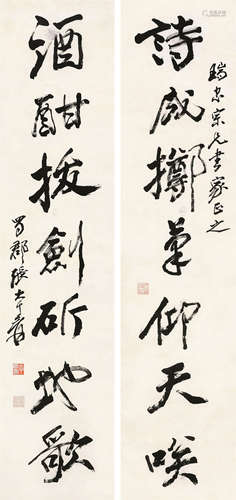 詩成擲筆仰天唉
瑞忠宗兄書家正之
酒酣拔劍斫地歌
蜀郡張大千爰